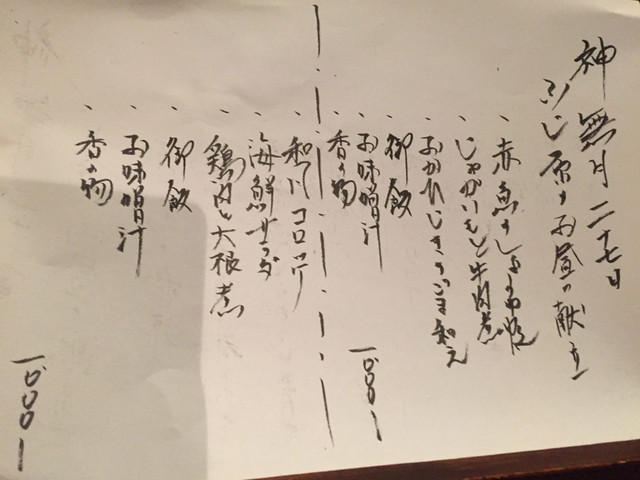 神無月二十七日
ふじ原のお昼の献立
、赤魚のしょうゆ焼
、じゃがいもと牛肉煮
、おかひじきのごま和え
、御飯
、お味噌汁
、香の物
一、〇〇〇ー
、和風コロッケ
、海鮮サラダ
、鶏肉と大根煮
、御飯
、お味噌汁
、香の物
一、〇〇〇ー